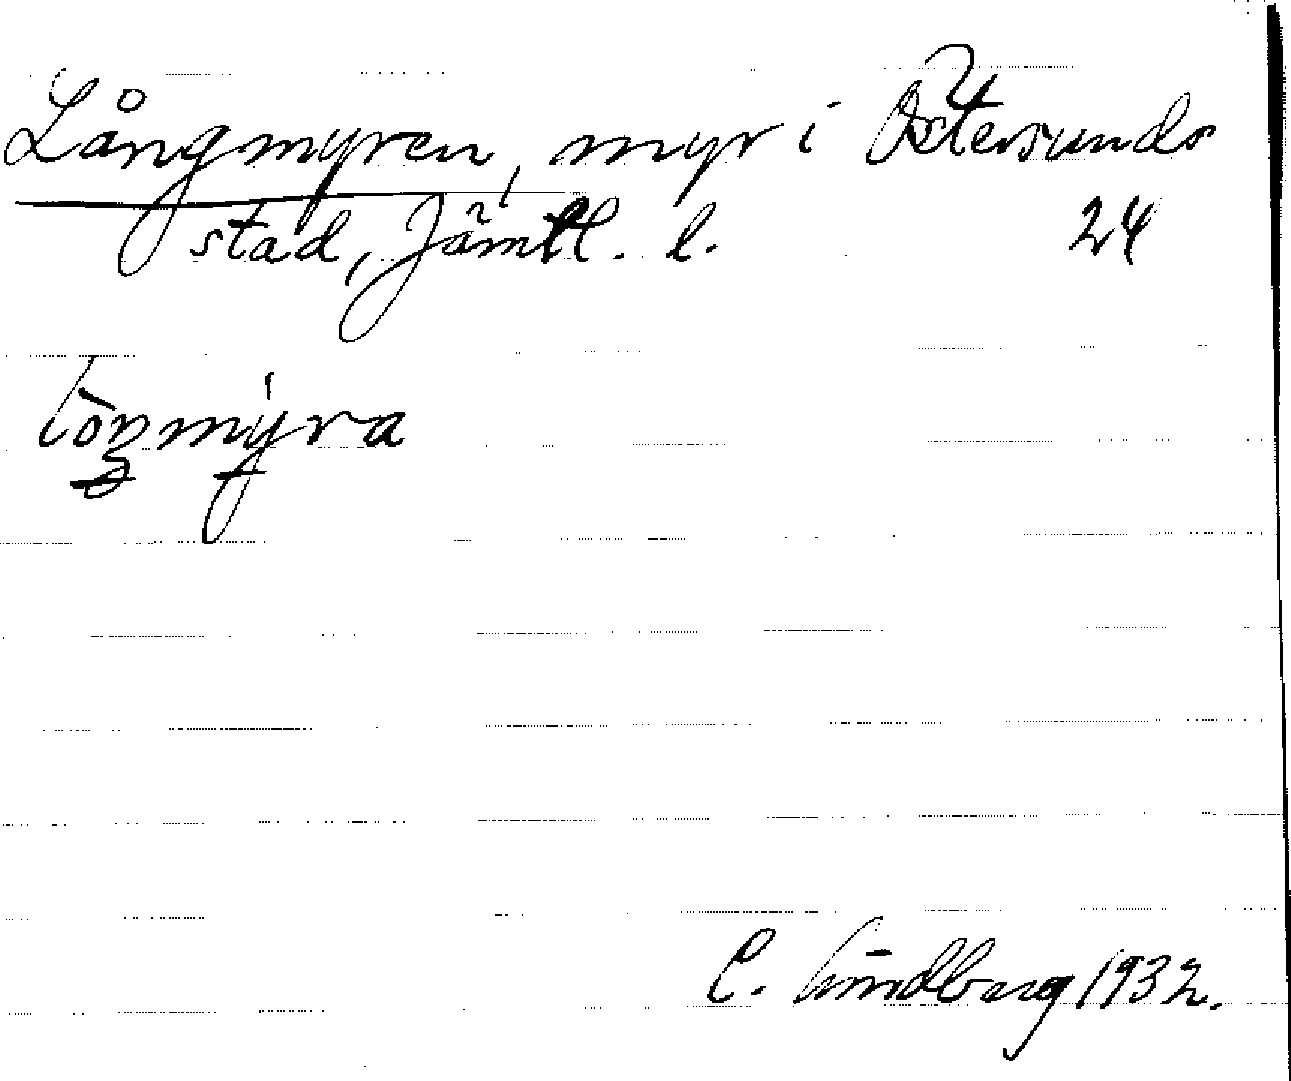 Långmyren, myr i Östersunds
stad, Jämtl. l. 24
C. Lindberg 1932.